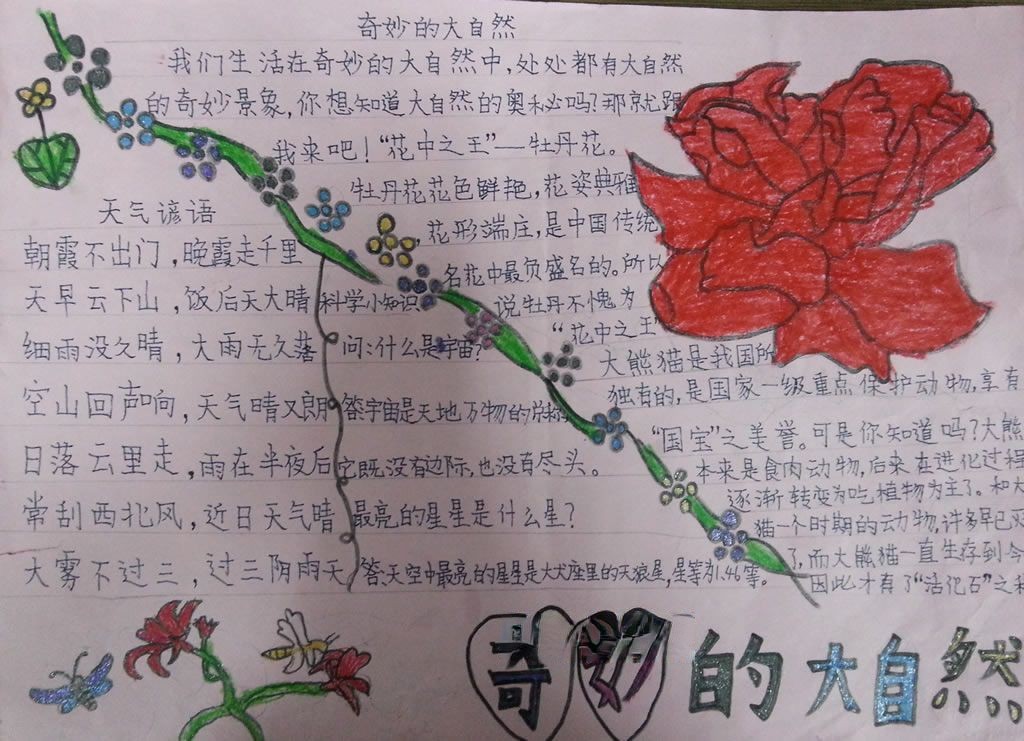 奇妙的大自然
我们生活在奇妙的大自然中,处处都有大自然
的奇妙景象,你想知道大自然的奥秘吗?那就跟
我来吧!“花中之王”——牡丹花。
牡丹花花色鲜艳,花姿典雅
花形端庄,是中国传统
名花中最负盛名的。所以
说牡丹不愧为
“花中之王”
大熊猫是我国所
独有的,是国家一级重点保护动物,享有
“国宝”之美誉。可是你知道吗?大熊
本来是食肉动物,后来在进化过程
逐渐转变为吃植物为主了。和大
猫一个时期的动物,许多早已灭
了,而大熊猫一直生存到今
因此才有了“活化石”之
天气谚语
朝霞不出门,晚霞走千里
天早云下山,饭后天大晴
细雨没久晴,大雨无久落
空山回声响,天气晴又朗
日落云里走,雨在半夜后
常刮西北风,近日天气晴
大雾不过三,过三阴雨天
科学小知识
问:什么是宇宙?
答:宇宙是天地万物的总称
它既没有边际,也没有尽头。
最亮的星星是什么星?
答:天空中最亮的星星是大犬座里的天狼星,星等为1.46等。
奇妙的大自然